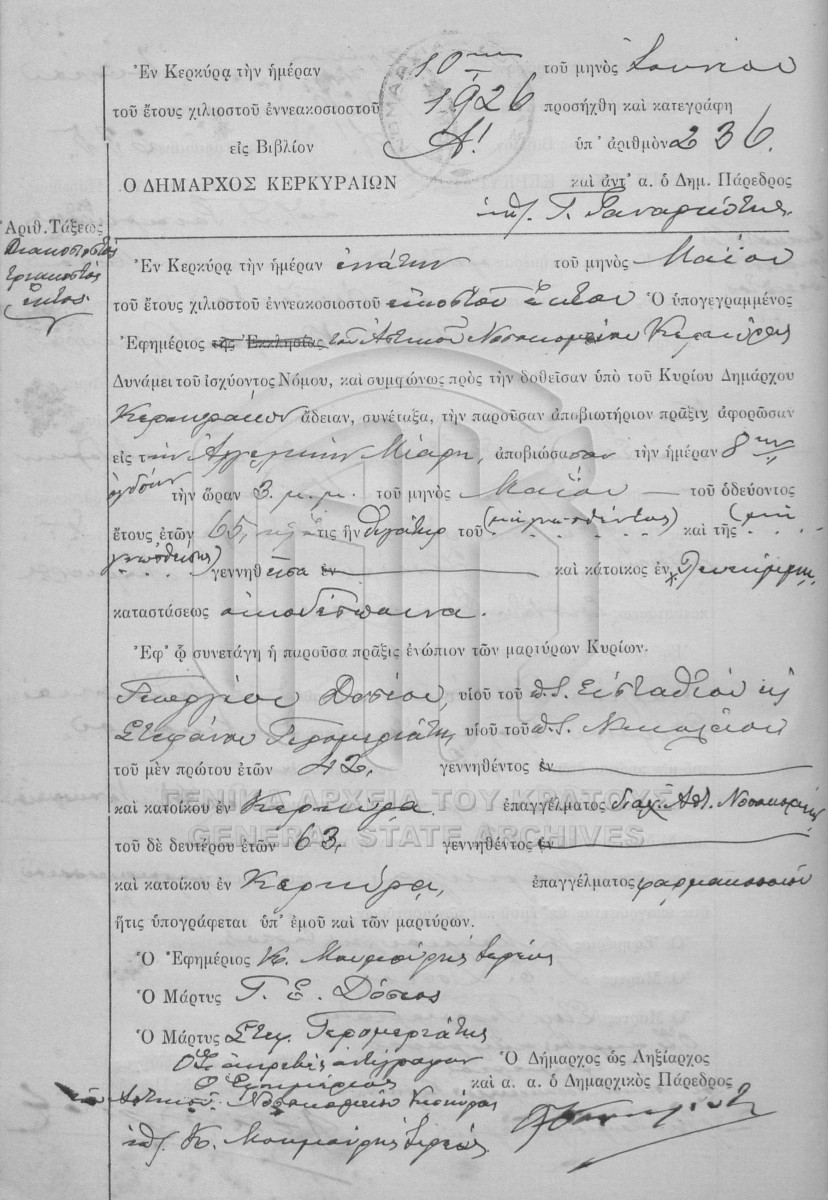 Ἐν Κερκύρᾳ τὴν ἡμέραν 10ην τοῦ μηνὸς Ἰουνίου
τοῦ ἔτους χιλιοστοῦ ἐννεακοσιοστοῦ 1926 προσήχθη καὶ κατεγράφη
εἰς Βιβλίον Α! ὑπ' ἀριθμὸν 236.
Ο ΔΗΜΑΡΧΟΣ ΚΕΡΚΥΡΑΙΩΝ καὶ ἀντ' α. ὁ Δημ. Πάρεδρος
Ἀριθ. Τάξεως
Διακοσιοστὸς
τριακοστὸς
ἕκτος
Ἐν Κερκύρᾳ τὴν ἡμέραν ἐνάτην τοῦ μηνὸς Μαΐου
τοῦ ἔτους χιλιοστοῦ ἐννεακοσιοστοῦ εἰκοστοῦ ἕκτου Ὁ ὑπογεγραμμένος
Ἐφημέριος τῆς Ἐκκλησίας τοῦ Ἀστικοῦ Νοσοκομείου Κερκύρας
Δυνάμει τοῦ ἰσχύοντος Νόμου, καὶ συμφώνως πρὸς τὴν δοθεῖσαν ὑπὸ τοῦ Κυρίου Δημάρχου
Κερκυραίων ἄδειαν, συνέταξα, τὴν παροῦσαν ἀποβιωτήριον πρᾶξιν, ἀφορῶσαν
εἰς τὴν Ἀγγελικὴν Μιάρη, ἀποβιώσασαν τὴν ἡμέραν 8ην
ὀγδόην τὴν ὥραν 3 μ.μ. τοῦ μηνὸς Μαΐου τοῦ ὁδεύοντος
ἔτους ἐτῶν 65, ἥτις ἦν θυγάτηρ τοῦ (μὴ γνωσθέντος) καὶ τῆς (μὴ
γνωσθείσης) γεννηθεῖσα ἐν καὶ κάτοικος ἐν
καταστάσεως οἰκοδέσποινα.
Ἐφ' ᾧ συνετάγη ἡ παροῦσα πρᾶξις ἐνώπιον τῶν μαρτύρων Κυρίων.
Γεωργίου Δοσίου, υἱοῦ τοῦ Εὐσταθίου καὶ
Στεφάνου Γερομεριάτη, υἱοῦ τοῦ Νικολάου
τοῦ μὲν πρώτου ἐτῶν 42, γεννηθέντος ἐν
καὶ κατοίκου ἐν Κερκύρα. ἐπαγγέλματος διαχ. Ἀστ. Νοσοκομείου
ΓΕΝΙΚΑ ΑΡΧΕΙΑ ΤΟΥ ΚΡΑΤΟΥΣ
GENERAL STATE ARCHIVES
τοῦ δὲ δευτέρου ἐτῶν 63, γεννηθέντος ἐν
καὶ κατοίκου ἐν Κερκύρα, ἐπαγγέλματος φαρμακοποιοῦ
ἥτις ὑπογράφεται ὑπ' ἐμοῦ καὶ τῶν μαρτύρων.
Ὁ Ἐφημέριος Κ. Ἱερεὺς
Ὁ Μάρτυς Γ. Ε. Δόσιος
Ὁ Μάρτυς Στεφ. Γερομεριάτης
Ὅτι ἀκριβὲς ἀντίγραφον Ὁ Δήμαρχος ὡς Ληξίαρχος
Ὁ Ἐφημέριος καὶ α. α. ὁ Δημαρχικὸς Πάρεδρος
τοῦ Ἀστικοῦ Νοσοκομείου Κερκύρας